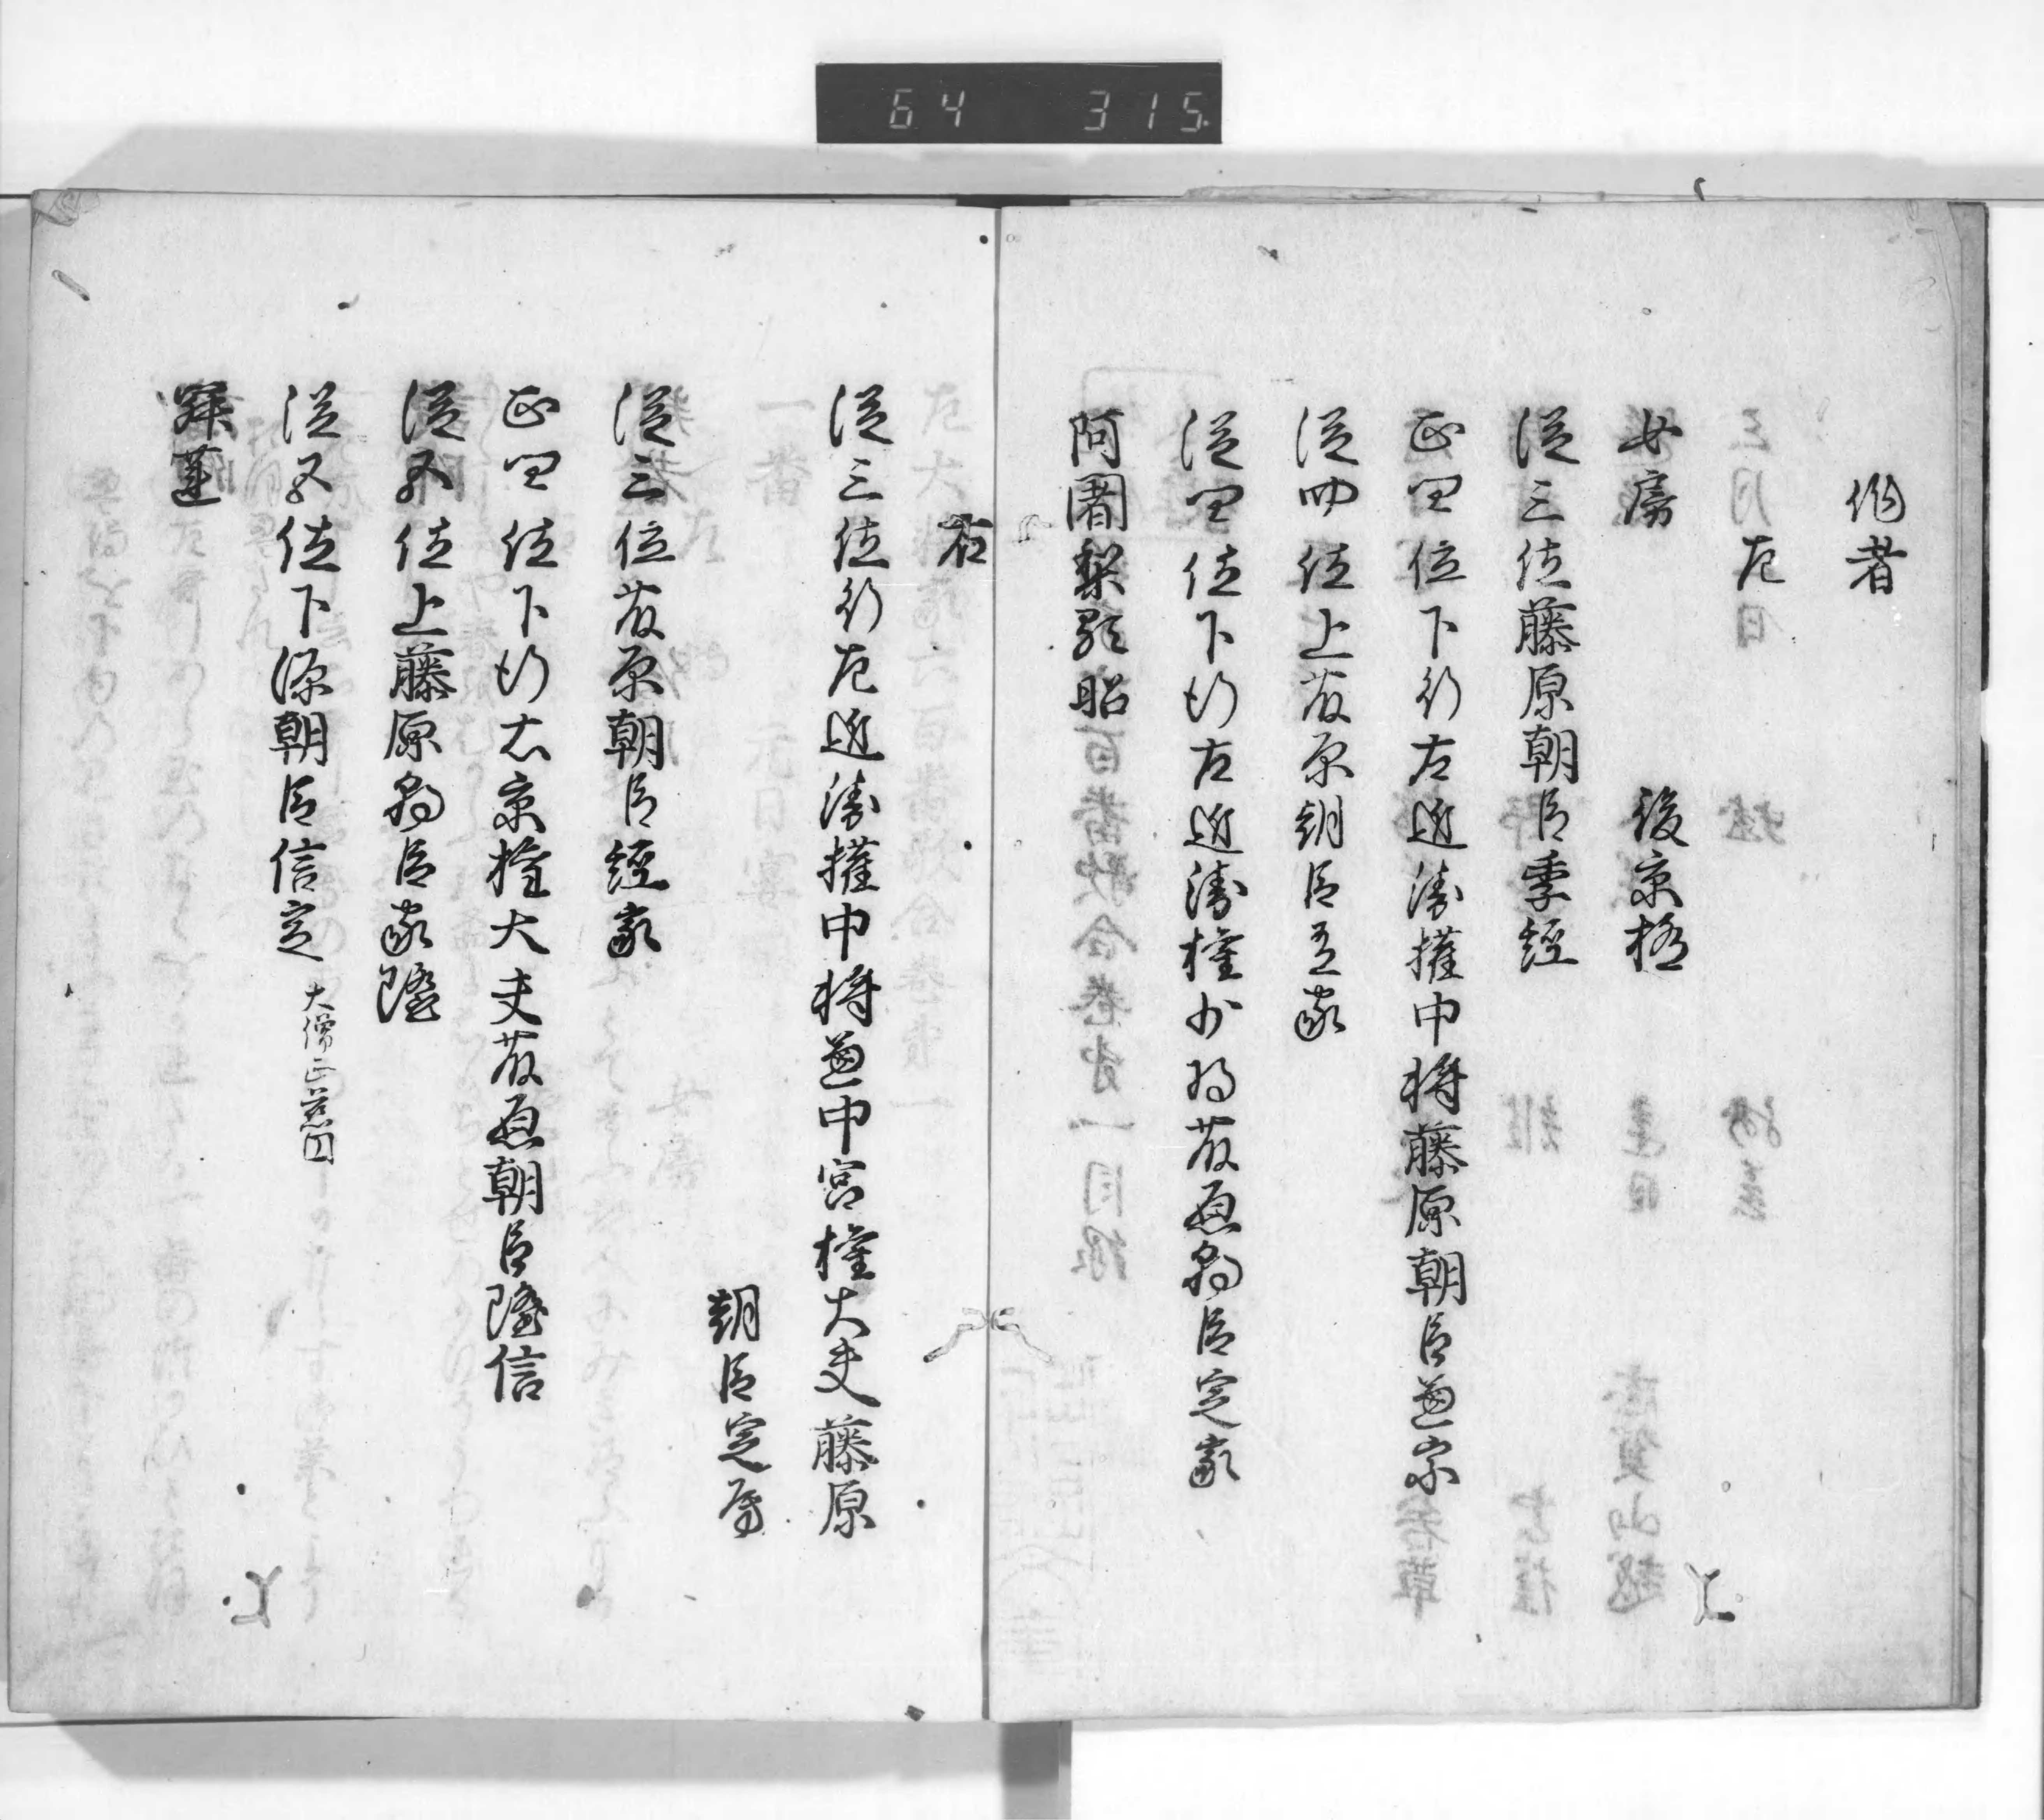 64 315
作者
左
女房 後京極
従三位藤原朝臣季経
正四位下行左近衛権中将藤原朝臣兼宗
従四位上藤原朝臣有家
従四位下行左近衛権少将藤原朝臣定家
阿闍梨顕昭
右
従三位行左近衛権中将兼中宮権大夫藤原
朝臣家房
従三位藤原朝臣経家
正四位下行右京権大夫藤原朝臣隆信
従五位上藤原朝臣家隆
従五位下源朝臣信定 大僧正慈円
寂蓮